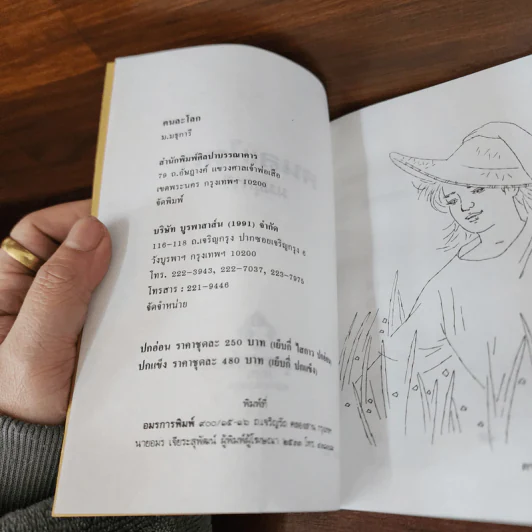 คนละโลก
ม.มธุการี
สำนักพิมพ์ศิลปาบรรณาคาร
79 ถ.อัษฎางค์ แขวงศาลเจ้าพ่อเสือ
เขตพระนคร กรุงเทพฯ 10200
จัดพิมพ์
บริษัท บูรพาสาส์น (1991) จำกัด
116-118 ถ.เจริญกรุง ปากซอยเจริญกรุง ๕
วังบูรพาฯ กรุงเทพฯ 10200
โทร. 222-3943, 222-7037, 223-7975
โทรสาร : 221-9446
จัดจำหน่าย
ปกอ่อน ราคาชุดละ 250 บาท (เย็บกี่ ไสกาว ปกอ่อน)
ปกแข็ง ราคาชุดละ 480 บาท (เย็บกี่ ปกแข็ง)
พิมพ์ที่
อมรการพิมพ์ ๙๐๐/๑๕-๑๖ ถ.เจริญรัถ คลองสาน กรุงเทพฯ
นายอมร เจียระสุพัฒน์ ผู้พิมพ์ผู้โฆษณา ๒๕๓๓ โทร